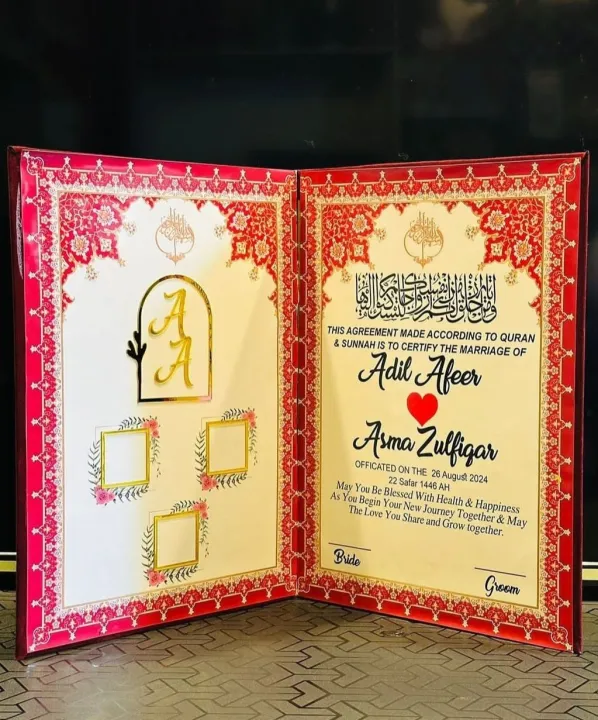 A
A
THIS AGREEMENT MADE ACCORDING TO QURAN
& SUNNAH IS TO CERTIFY THE MARRIAGE OF
Adil Afeer
Asma Zulfiqar
OFFICATED ON THE 26 August 2024
22 Safar 1446 AH
May You Be Blessed With Health & Happiness
As You Begin Your New Journey Together & May
The Love You Share and Grow together.
Bride
Groom